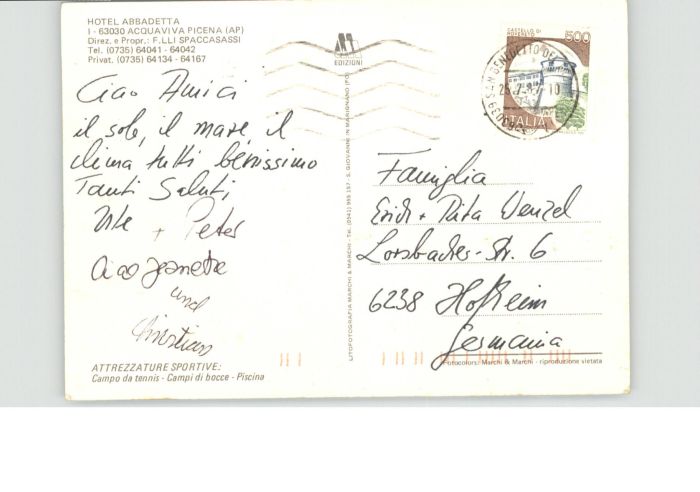 HOTEL ABBADETTA
I - 63030 ACQUAVIVA PICENA (AP)
Direz. e Propr.: F.LLI SPACCASASSI
Tel. (0735) 64041 - 64042
Privat. (0735) 64134 - 64167
EDIZIONI
CASTELLO DI
ROVERETO
500
ITALIA
63039 SAN BENEDETTO DEL
Ciao Amici
il sole, il mare, il
clima tutti benissimo
Tanti Saluti
Ute + Peter
Ciao Janette
und
Christian
ATTREZZATURE SPORTIVE:
Campo da tennis - Campi di bocce - Piscina
LITOFOTOGRAFIA MARCHI & MARCHI - Tel. (0541) 955 157 - S. GIOVANNI IN MARIGNANO (FO)
Famiglia
Erich + Rita Wenzel
Lorsbacher-Str. 6
6238 Hofheim
Germania
Fotocolors: Marchi & Marchi - riproduzione vietata